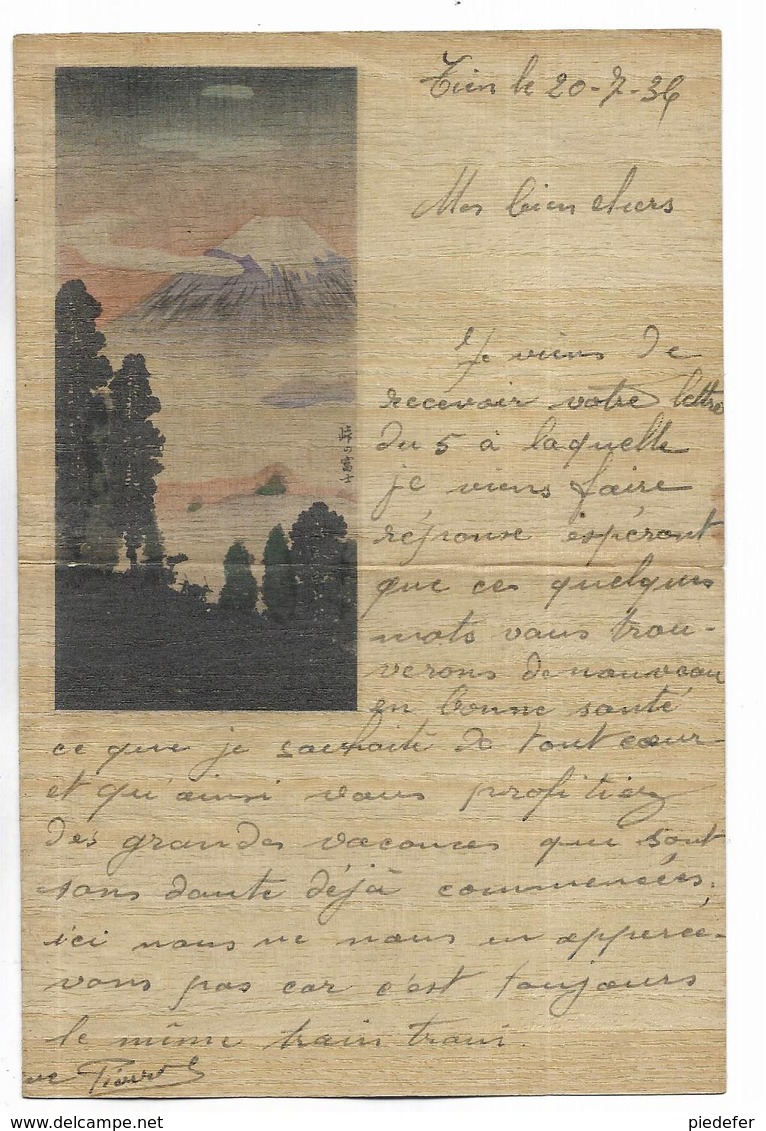 Tien le 20-7-36
Mes bien chers
Je viens de
recevoir votre lettre
du 5 à laquelle
je viens faire
réponse espérant
que ces quelques
mots vous trou-
verons de nouveau
en bonne santé
ce que je souhaite de tout cœur
et qu'ainsi vous profitiez
des grandes vacances qui sont
sans doute déjà commencées.
ici nous ne nous en apperce-
vons pas car c'est toujours
le même train train.
Pierrot
峠の富士
piedefer